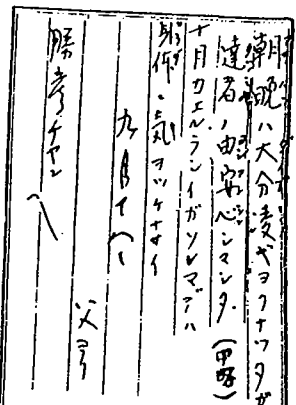 朝晩ハ大分凌ギヨクナツタガ
達者ノ由安心シマシタ。(中略)
十月カエルライイガソレマデハ
身体ニ気ヲツケナサイ
九月
父ヨリ
勝彦チヤンヘ